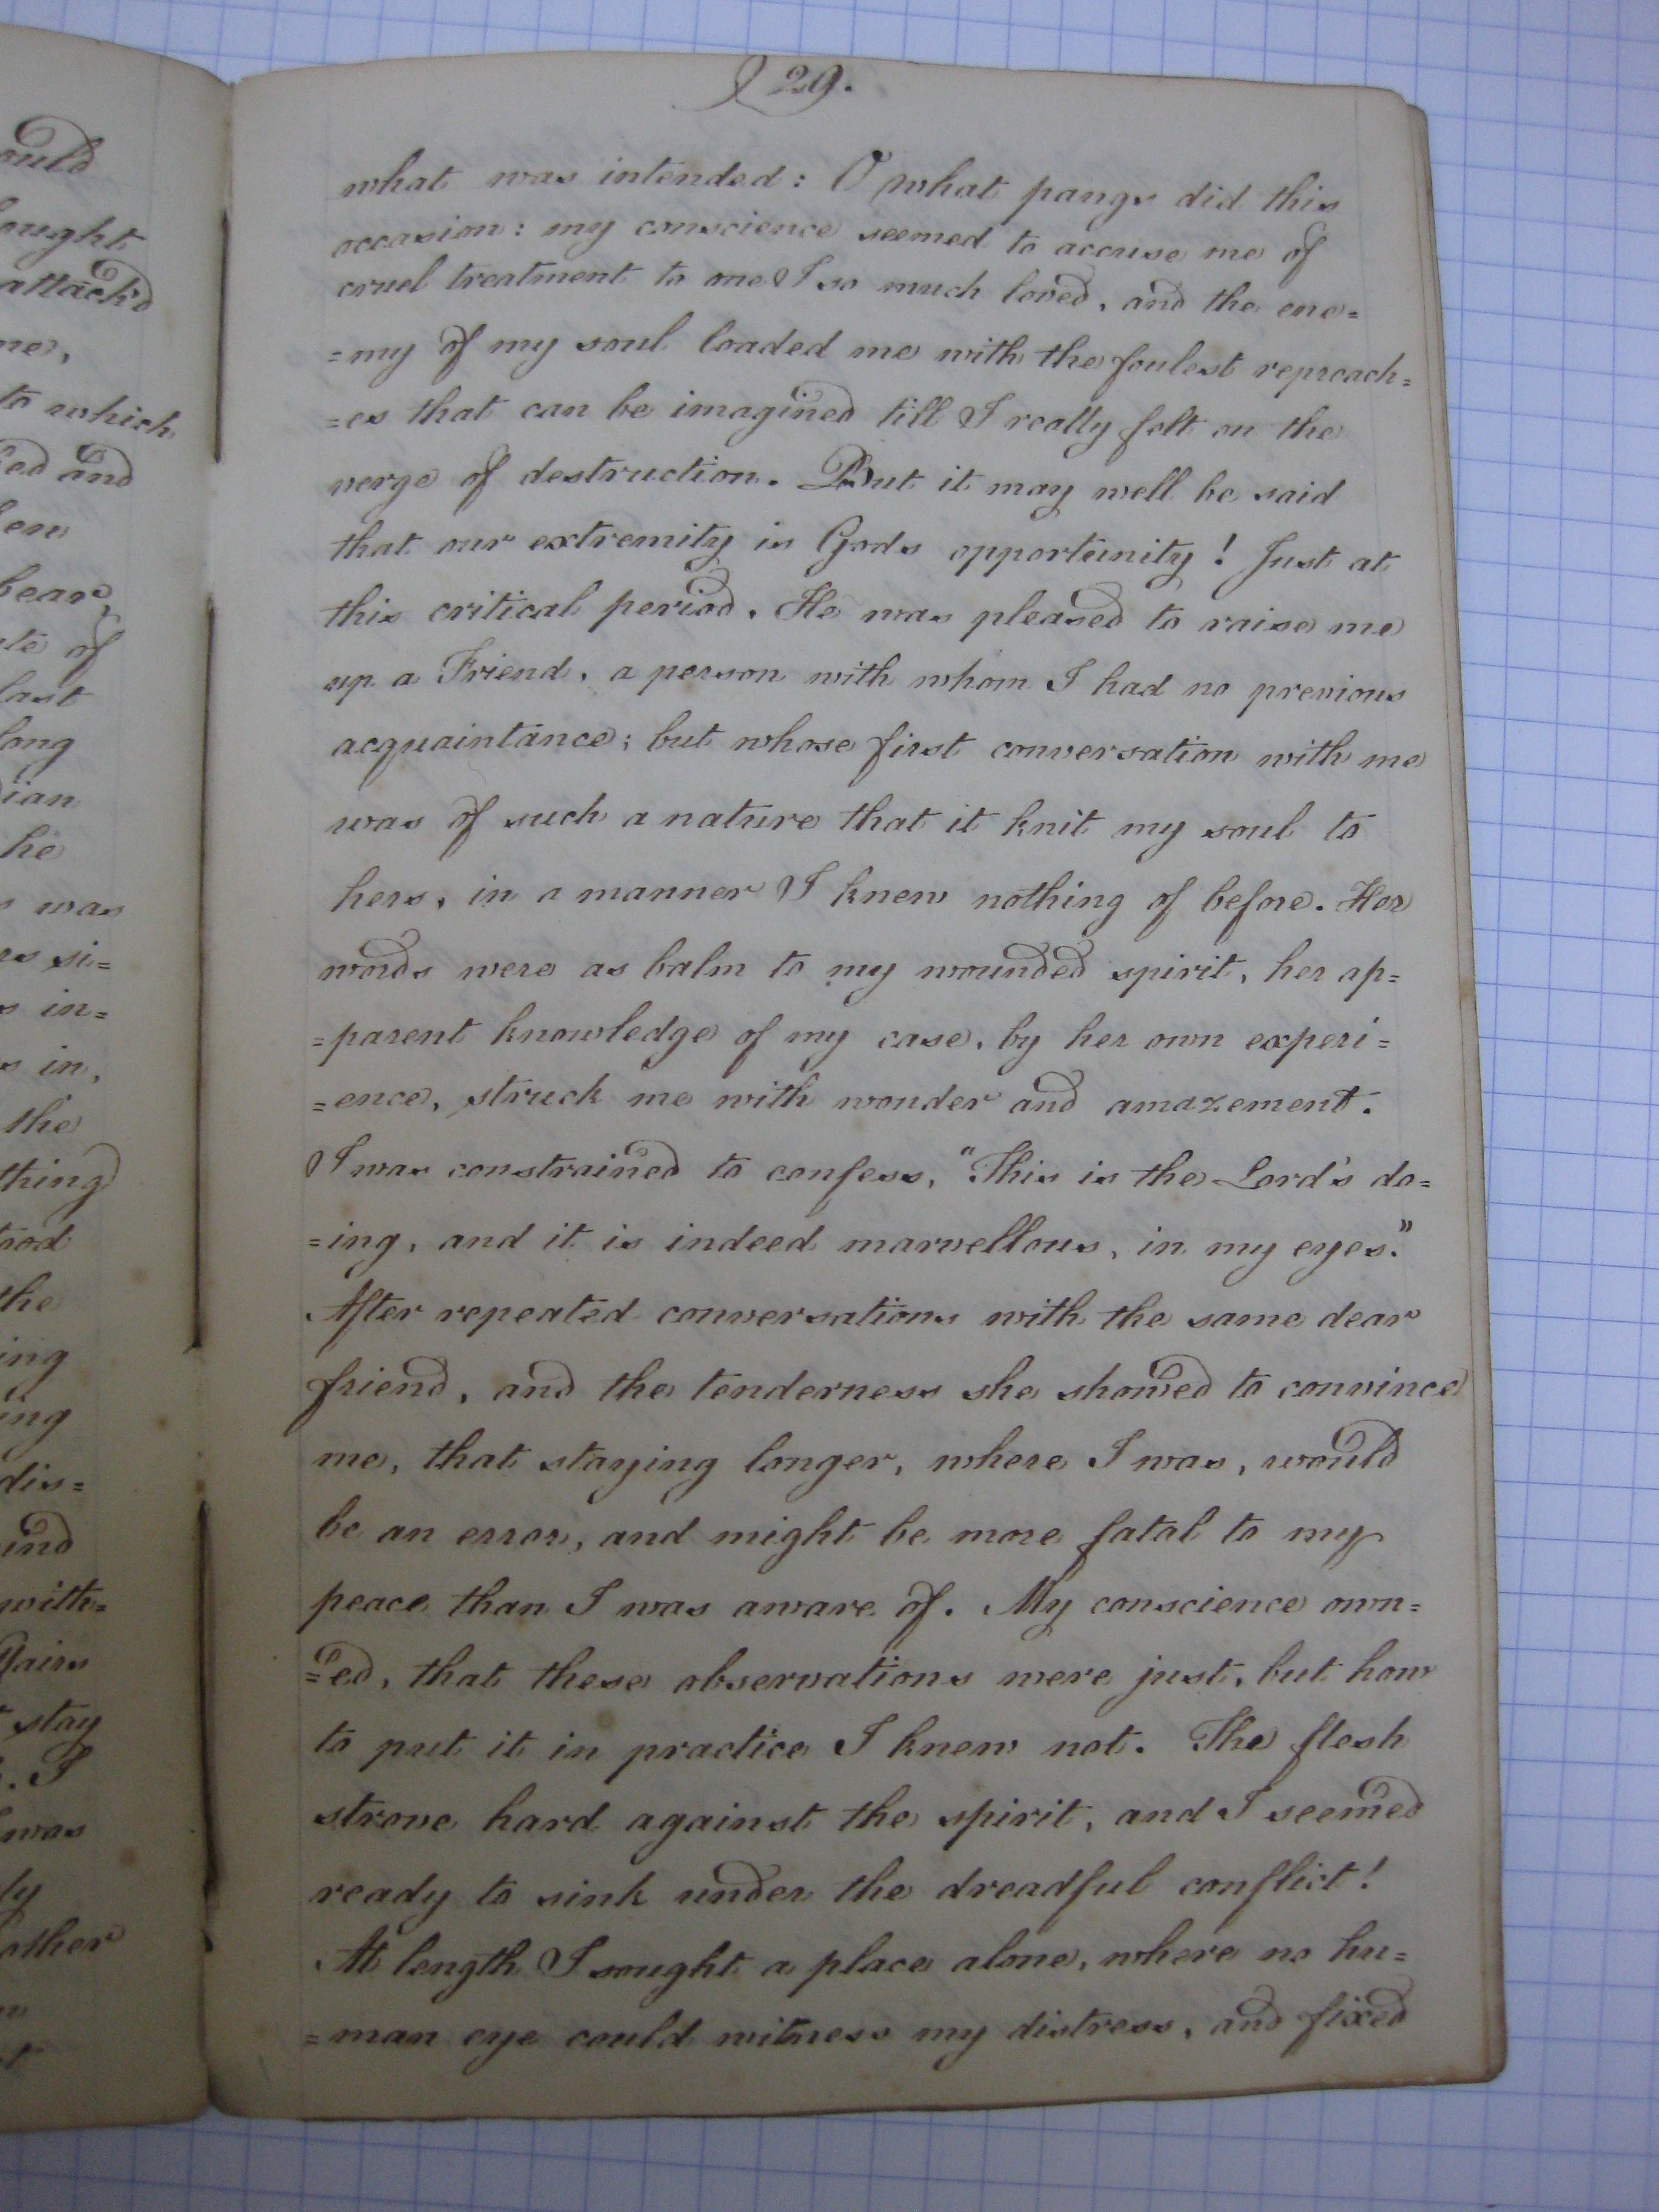 ould
ought
attack'd
to which
ed and
bear,
te of
last
long
ian
he
was
rs si=
in=
in,
the
thing
the
ing
ing
dis=
with=
stay
. I
was
ly
other
29.
what was intended: O what pangs did this
occasion: my conscience seemed to accuse me of
cruel treatment to one I so much loved, and the ene=
=my of my soul loaded me with the foulest reproach=
=es that can be imagined till I really felt on the
verge of destruction. But it may well be said
that our extremity is Gods opportunity! Just at
this critical period, He was pleased to raise me
up a Friend, a person with whom I had no previous
acquaintance; but whose first conversation with me
was of such a nature that it knit my soul to
hers, in a manner I knew nothing of before. Her
words were as balm to my wounded spirit, her ap=
=parent knowledge of my case, by her own experi=
=ence, struck me with wonder and amazement.
I was constrained to confess, "This is the Lord's do=
=ing, and it is indeed marvellous, in my eyes."
After repeated conversations with the same dear
friend, and the tenderness she showed to convince
me, that staying longer, where I was, would
be an error, and might be more fatal to my
peace than I was aware of. My conscience own=
=ed, that these observations were just, but how
to put it in practice I knew not. The flesh
strove hard against the spirit, and I seemed
ready to sink under the dreadful conflict!
At length I sought a place alone, where no hu=
=man eye could witness my distress, and fixed